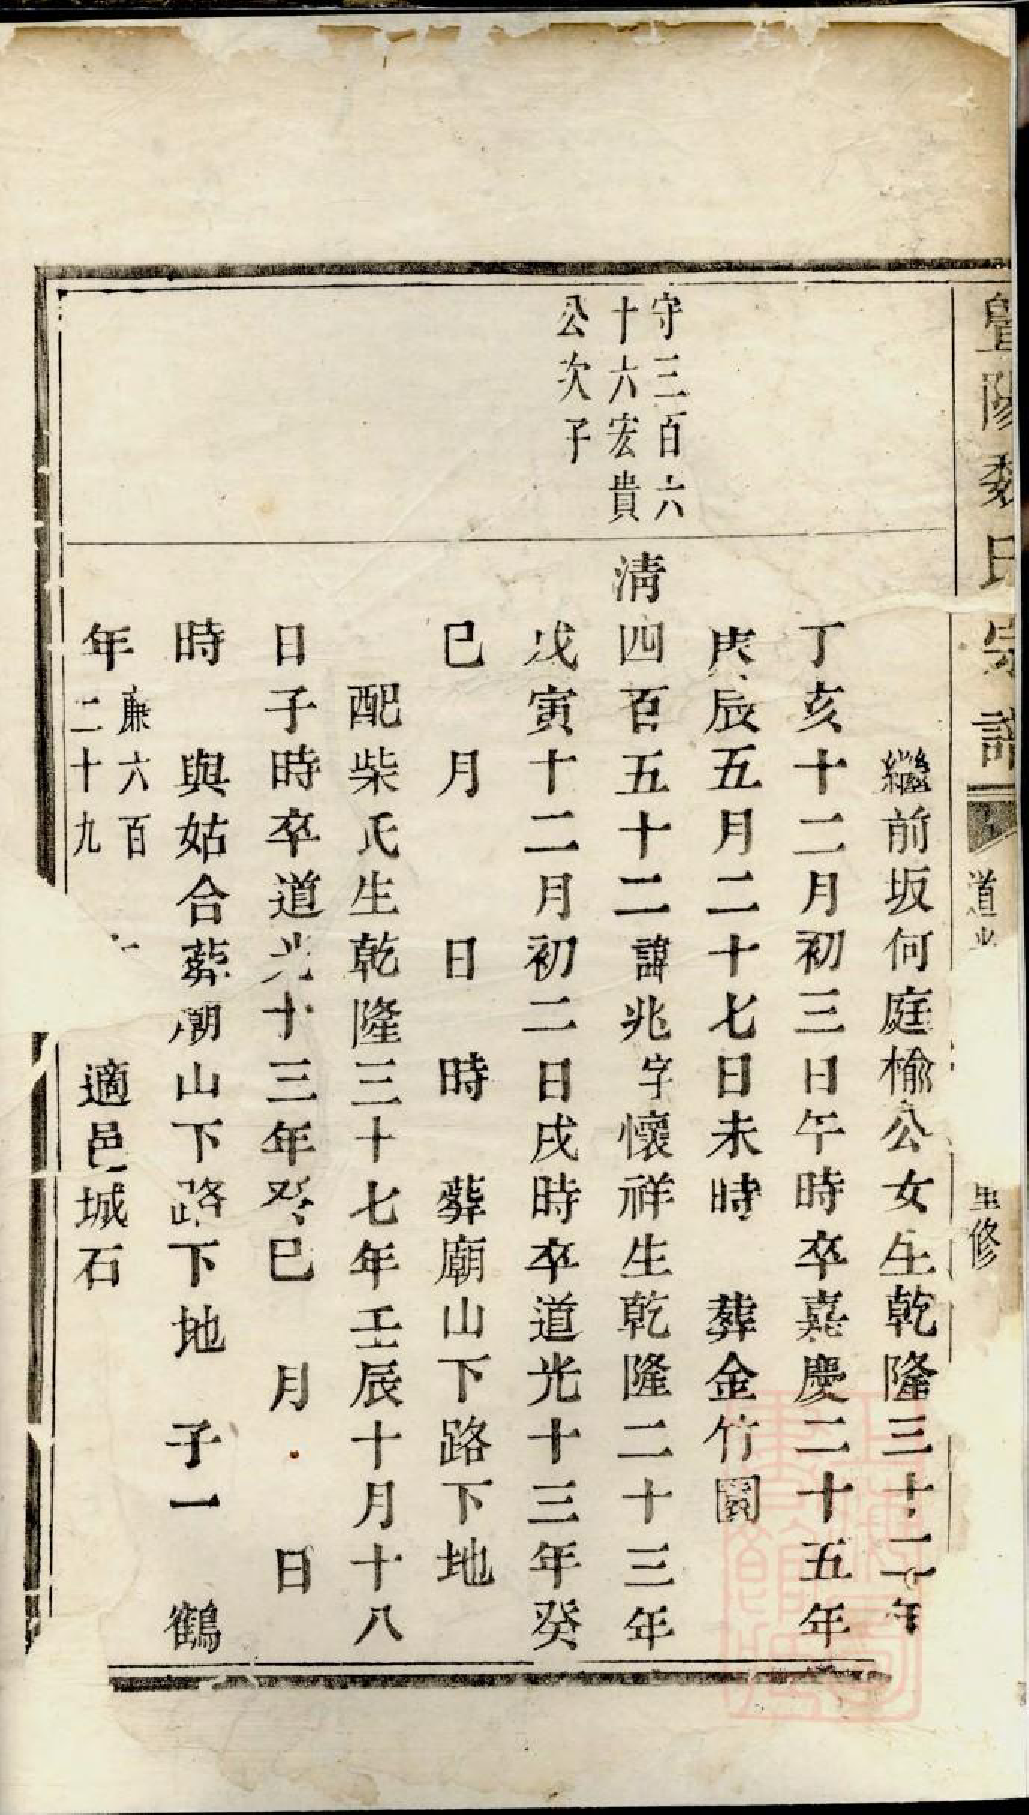 暨陽魏氏宗譜
道光
重修
繼前坂何庭榆公女生乾隆三十二年
丁亥十二月初三日午時卒嘉慶二十五年
庚辰五月二十七日未時 葬金竹園
守三百六
十六宏貴
公次子
清四百五十二諱兆字懷祥生乾隆二十三年
戊寅十二月初二日戌時卒道光十三年癸
巳 月 日 時 葬廟山下路下地
配柴氏生乾隆三十七年壬辰十月十八
日子時卒道光十三年癸巳 月 日
時 與姑合葬廟山下路下地 子一 鶴
年 廉六百二十九 適邑城石